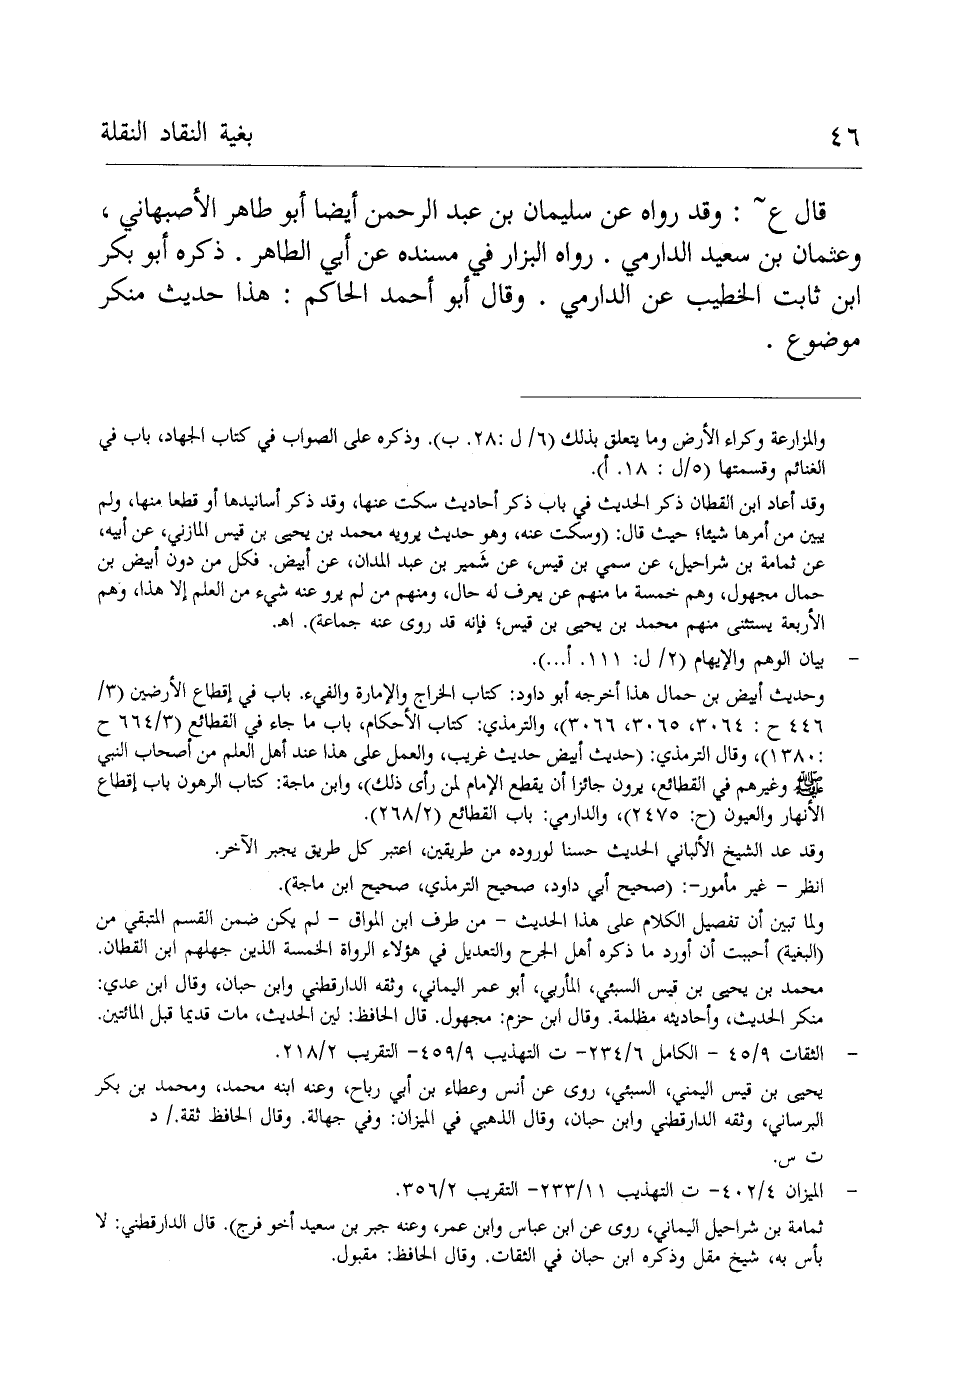 ٤٦ بغية النقاد النقلة
قال ع~ : وقد رواه عن سليمان بن عبد الرحمن أيضا أبو طاهر الأصبهاني ،
وعثمان بن سعيد الدارمي . رواه البزار في مسنده عن أبي الطاهر . ذكره أبو بكر
ابن ثابت الخطيب عن الدارمي . وقال أبو أحمد الحاكم : هذا حديث منكر
موضوع .
والمزارعة وكراء الأرض وما يتعلق بذلك (٦/ ل :٢٨. ب). وذكره على الصواب في كتاب الجهاد، باب في
الغنائم وقسمتها (٥/ل : ١٨. أ).
وقد أعاد ابن القطان ذكر الحديث في باب ذكر أحاديث سكت عنها، وقد ذكر أسانيدها أو قطعا منها، ولم
يبين من أمرها شيئا؛ حيث قال: (وسكت عنه، وهو حديث يرويه محمد بن يحيى بن قيس المازني، عن أبيه،
عن ثمامة بن شراحيل، عن سمي بن قيس، عن شَمير بن عبد المدان، عن أبيض. فكل من دون أبيض بن
حمال مجهول، وهم خمسة ما منهم عن يعرف له حال، ومنهم من لم يرو عنه شيء من العلم إلا هذا، وهم
الأربعة يستثنى منهم محمد بن يحيى بن قيس؛ فإنه قد روى عنه جماعة). اهـ.
– بيان الوهم والإيهام (٢/ ل: ١١١. أ...).
وحديث أبيض بن حمال هذا أخرجه أبو داود: كتاب الخراج والإمارة والفيء. باب في إقطاع الأرضين (٣/
٤٤٦ ح : ٣٠٦٤، ٣٠٦٥، ٣٠٦٦)، والترمذي: كتاب الأحكام، باب ما جاء في القطائع (٦٦٤/٣ ح
:١٣٨٠)، وقال الترمذي: (حديث أبيض حديث غريب، والعمل على هذا عند أهل العلم من أصحاب النبي
ﷺ وغيرهم في القطائع، يرون جائزا أن يقطع الإمام لمن رأى ذلك)، وابن ماجة: كتاب الرهون باب إقطاع
الأنهار والعيون (ح: ٢٤٧٥)، والدارمي: باب القطائع (٢٦٨/٢).
وقد عد الشيخ الألباني الحديث حسنا لوروده من طريقين، اعتبر كل طريق يجبر الآخر.
انظر – غير مأمور–: (صحيح أبي داود، صحيح الترمذي، صحيح ابن ماجة).
ولما تبين أن تفصيل الكلام على هذا الحديث – من طرف ابن المواق – لم يكن ضمن القسم المتبقي من
(البغية) أحببت أن أورد ما ذكره أهل الجرح والتعديل في هؤلاء الرواة الخمسة الذين جهلهم ابن القطان.
محمد بن يحيى بن قيس السبئي، المأربي، أبو عمر اليماني، وثقه الدارقطني وابن حبان، وقال ابن عدي:
منكر الحديث، وأحاديثه مظلمة. وقال ابن حزم: مجهول. قال الحافظ: لين الحديث، مات قديما قبل المائتين.
– الثقات ٤٥/٩ – الكامل ٢٣٤/٦– ت التهذيب ٤٥٩/٩– التقريب ٢١٨/٢.
يحيى بن قيس اليمني، السبئي، روى عن أنس وعطاء بن أبي رباح، وعنه ابنه محمد، ومحمد بن بكر
البرساني، وثقه الدارقطني وابن حبان، وقال الذهبي في الميزان: وفي جهالة. وقال الحافظ ثقة./ د
ت س.
– الميزان ٤٠٢/٤– ت التهذيب ٢٣٣/١١– التقريب ٣٥٦/٢.
ثمامة بن شراحيل اليماني، روى عن ابن عباس وابن عمر، وعنه جبر بن سعيد أخو فرج). قال الدارقطني: لا
بأس به، شيخ مقل وذكره ابن حبان في الثقات. وقال الحافظ: مقبول.